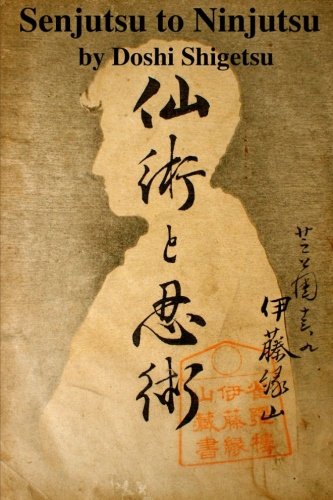 Senjutsu to Ninjutsu
by Doshi Shigetsu
仙術と忍術
伊藤縁山
伊藤縁
山蔵書